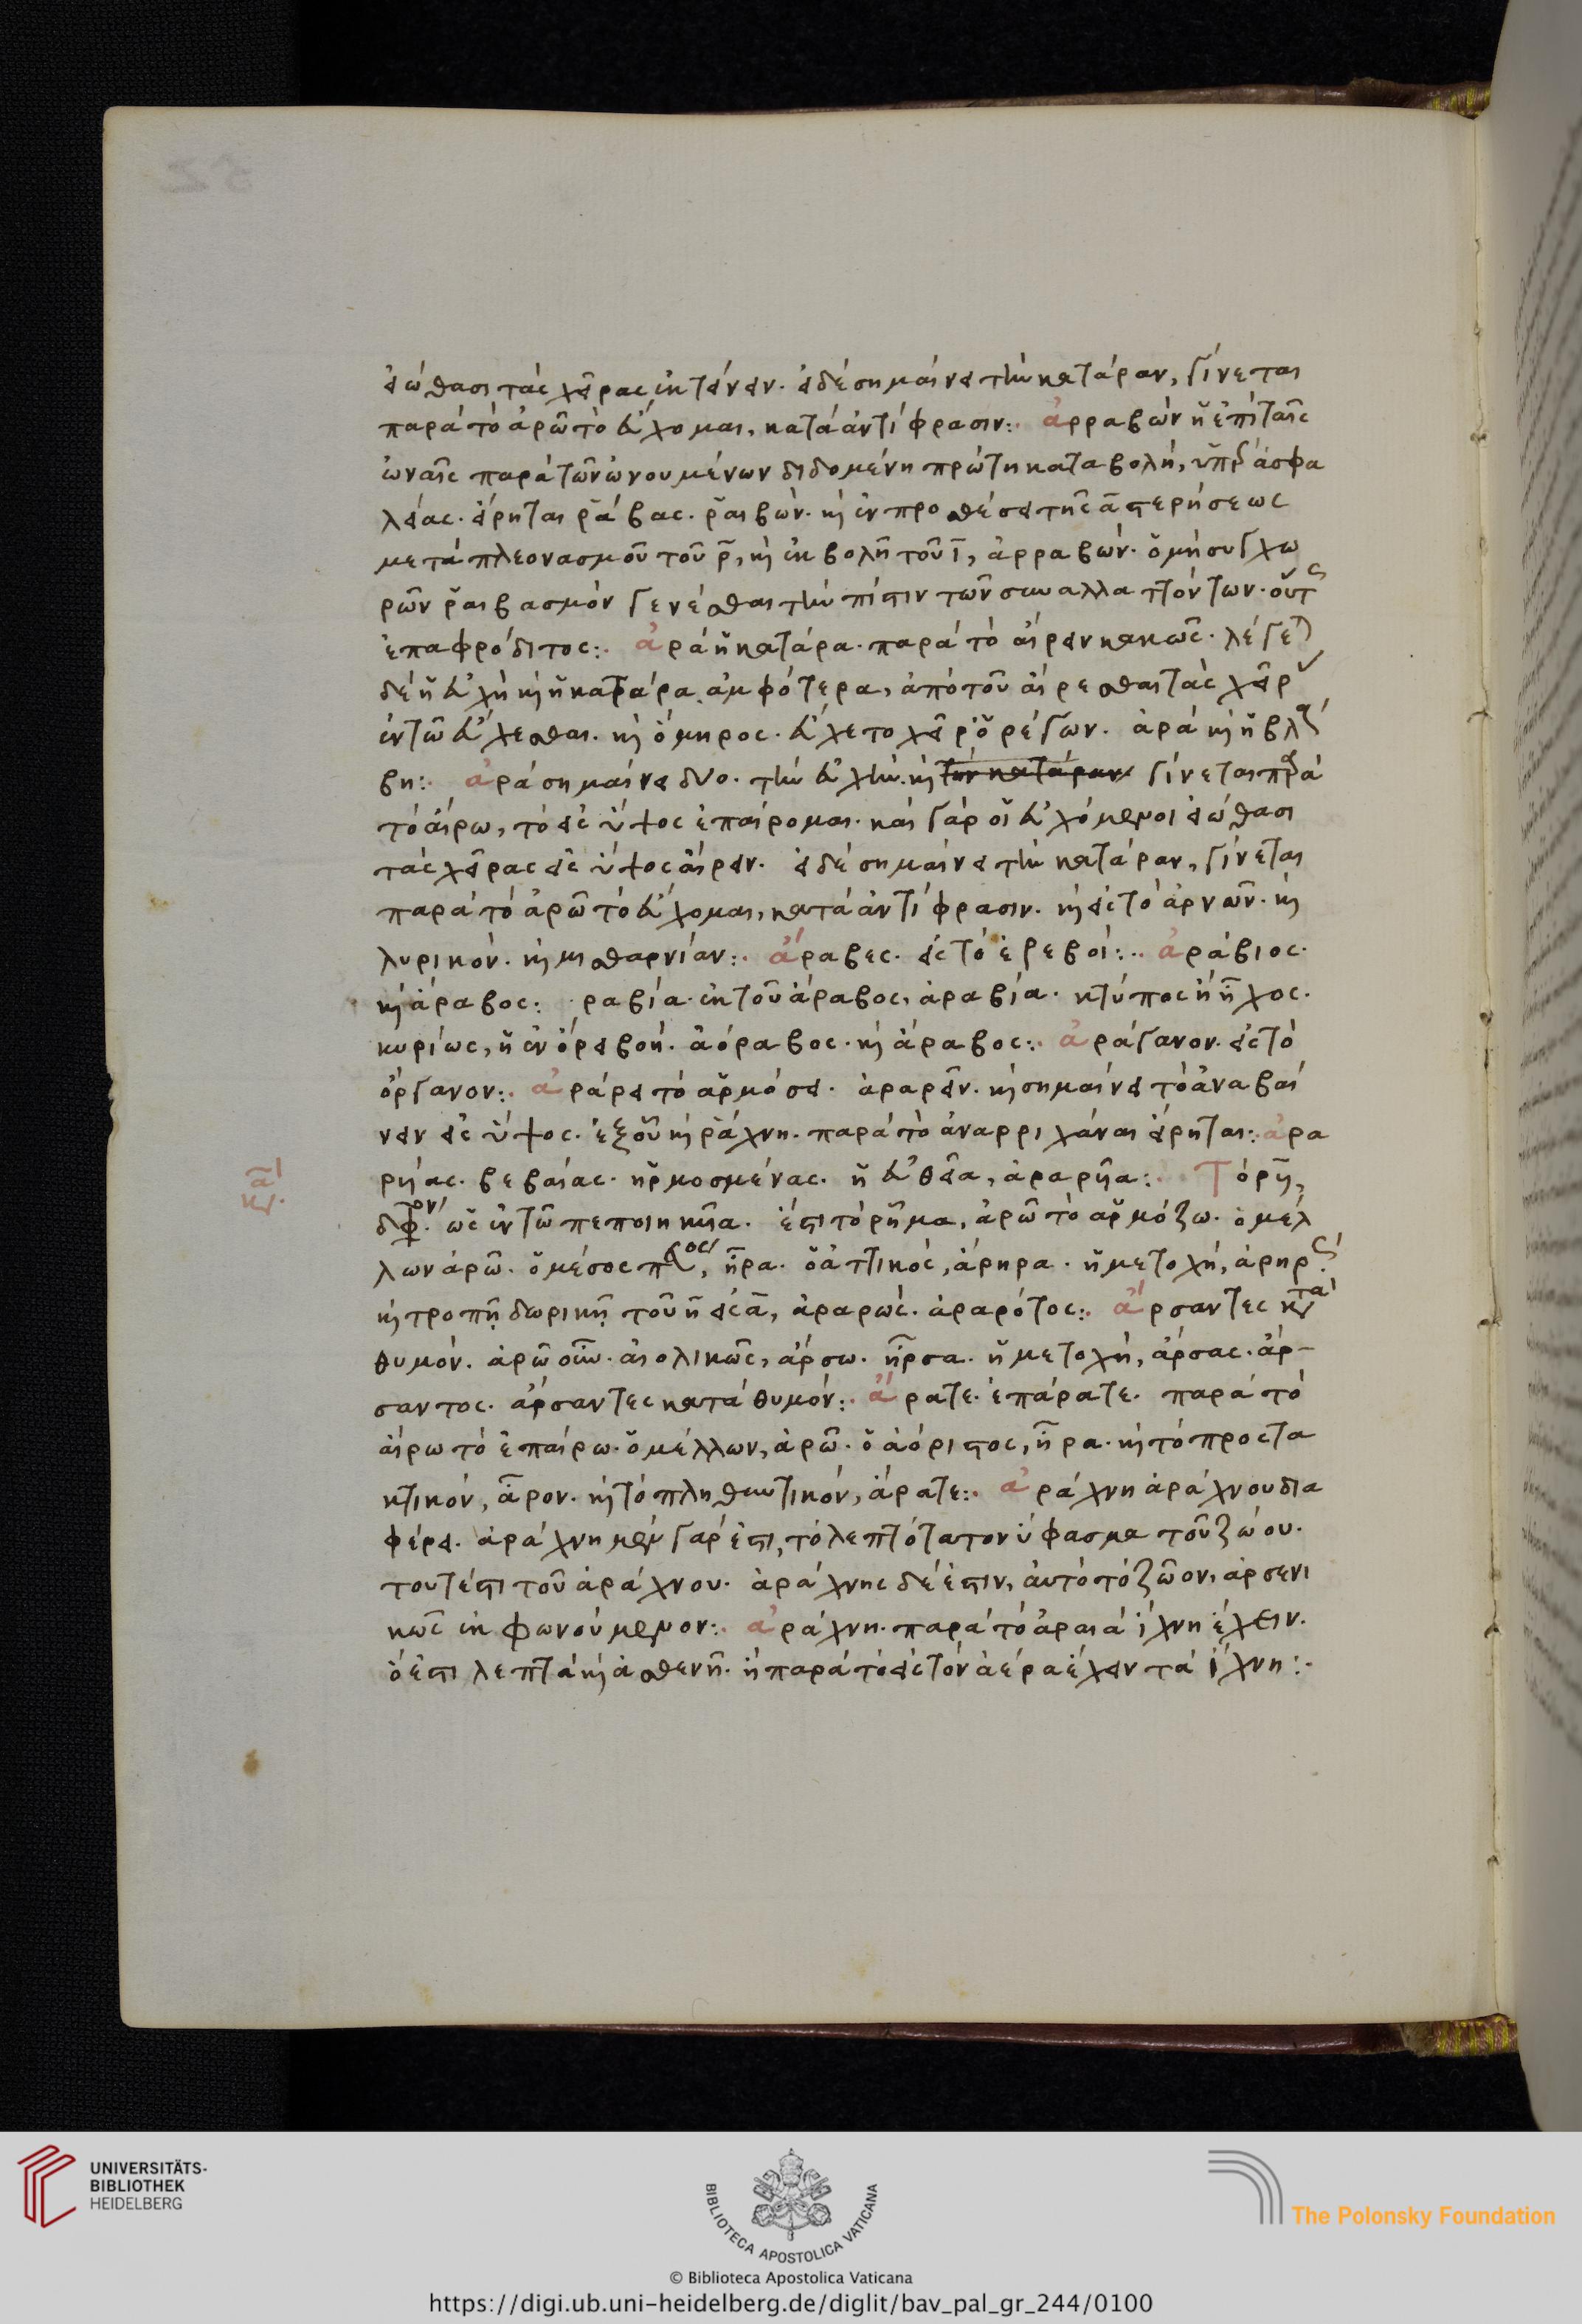 εἰώθασι τὰς χεῖρας ἐκτείνειν. εἰ δὲ σημαίνει τὴν κατάραν, γίνεται
παρὰ τὸ ἀρῶ τὸ εὔχομαι, κατὰ ἀντίφρασιν:. ἀρραβὼν ἡ ἐπὶ ταῖς
ὠναῖς παρὰ τῶν ὠνουμένων διδομένη πρώτη καταβολὴ, ὑπὲρ ἀσφα
λείας. εἴρηται ῥάβας. ῥαιβών. καὶ ἐν προθέσει τῆς α στερήσεως
μετὰ πλεονασμοῦ τοῦ ρ, καὶ ἐκβολῆ τοῦ ι, ἀρραβών. ὁ μὴ συγχω
ρῶν ῥαιβασμὸν γενέσθαι τὴν πίστιν τῶν συναλλαττόντων. οὕτως
ἐπαφρόδιτος:. ἀρὰ ἡ κατάρα. παρὰ τὸ αἴρειν κακῶς. λέγεται
δὲ ἡ εὐχὴ καὶ ἡ κατάρα ἀμφότερα, ἀπὸ τοῦ αἴρεσθαι τὰς χεῖρας
ἐν τῶ εὔχεσθαι. καὶ ὅμηρος. εὔχετο χεῖρ' ὀρέγων. ἀρὰ καὶ ἡ βλά
βη:. ἀρὰ σημαίνει δύο. τὴν εὐχὴν. καὶ τὴν κατάραν γίνεται παρὰ
τὸ αἴρω, τὸ εἰς ὕψος ἐπαίρομαι. καὶ γὰρ οἱ εὐχόμενοι εἰώθασι
τὰς χεῖρας εἰς ὕψος αἴρειν. εἰ δὲ σημαίνει τὴν κατάραν, γίνεται
παρὰ τὸ ἀρῶ τὸ εὔχομαι, κατὰ ἀντίφρασιν. καὶ εἰς τὸ ἀρνῶν. καὶ
λυρικόν. καὶ κιθαρνίαν:. ἄραβες. εἰς τὸ ἐρεβοί:. ἀράβιος.
καὶ ἄραβος: ραβία. ἐκ τοῦ ἄραβος, ἀραβία. κτύπος ἢ ἦχος.
κυρίως, ἡ ἐν ὄρει βοή. ἀόραβος. καὶ ἄραβος:. ἀράγανον. εἰς τὸ
ὄργανον:. ἀράρει τὸ ἁρμόσει. ἀραρεῖν. καὶ σημαίνει τὸ ἀναβαί
νειν εἰς ὕψος. ἐξ οὗ καὶ ῥάχνη. παρὰ τὸ ἀναρριχάναι εἴρηται: ἀρα
ρυίας. βεβαίας. ἡρμοσμένας. ἡ εὐθεῖα, ἀραρυῖα: Τὸ ρυ,
διφ. ὡς ἐν τῶ πεποιηκυῖα. ἔστι τὸ ρῆμα, ἀρῶ τὸ ἁρμόζω. ὁ μέλ
λων ἀρῶ. ὁ μέσος , ἦρα. ὁ ἀττικὸς, ἄρηρα. ἡ μετοχὴ, ἀρηρώς.
καὶ τροπῇ δωρικῇ τοῦ η εἰς α, ἀραρώς. ἀραρότος:. ἄρσαντες κατὰ
θυμόν. ἀρῶ οὖν. αἰολικῶς, ἄρσω. ἦρσα. ἡ μετοχὴ, ἄρσας. ἄρ-
σαντος. ἄρσαντες κατὰ θυμόν:. ἄρατε. ἐπάρατε. παρὰ τὸ
αἴρω τὸ ἐπαίρω. ὁ μέλλων, ἀρῶ. ὁ ἀόριστος, ἦρα. καὶ τὸ προστα
κτικόν, ἆρον. καὶ τὸ πληθυντικόν, ἄρατε:. ἀράχνη ἀράχνου δια
φέρει. ἀράχνη μὲν γὰρ ἐστι, τὸ λεπτότατον ὕφασμα τοῦ ζώου.
τουτέστι τοῦ ἀράχνου. ἀράχνης δέ ἐστιν, αὐτὸ τὸ ζῶον, ἀρσενι
κῶς ἐκφωνούμενον:. ἀράχνη. παρὰ τὸ ἀραιὰ ἴχνη ἔχειν.
ὅ ἐστι λεπτὰ καὶ ἀσθενῆ. ἢ παρὰ τὸ εἰς τὸν ἀέρα ἔχειν τὰ ἴχνη:.
UNIVERSITÄTS-
BIBLIOTHEK
HEIDELBERG
BIBLIOTECA APOSTOLICA VATICANA
The Polonsky Foundation
© Biblioteca Apostolica Vaticana
https://digi.ub.uni-heidelberg.de/diglit/bav_pal_gr_244/0100